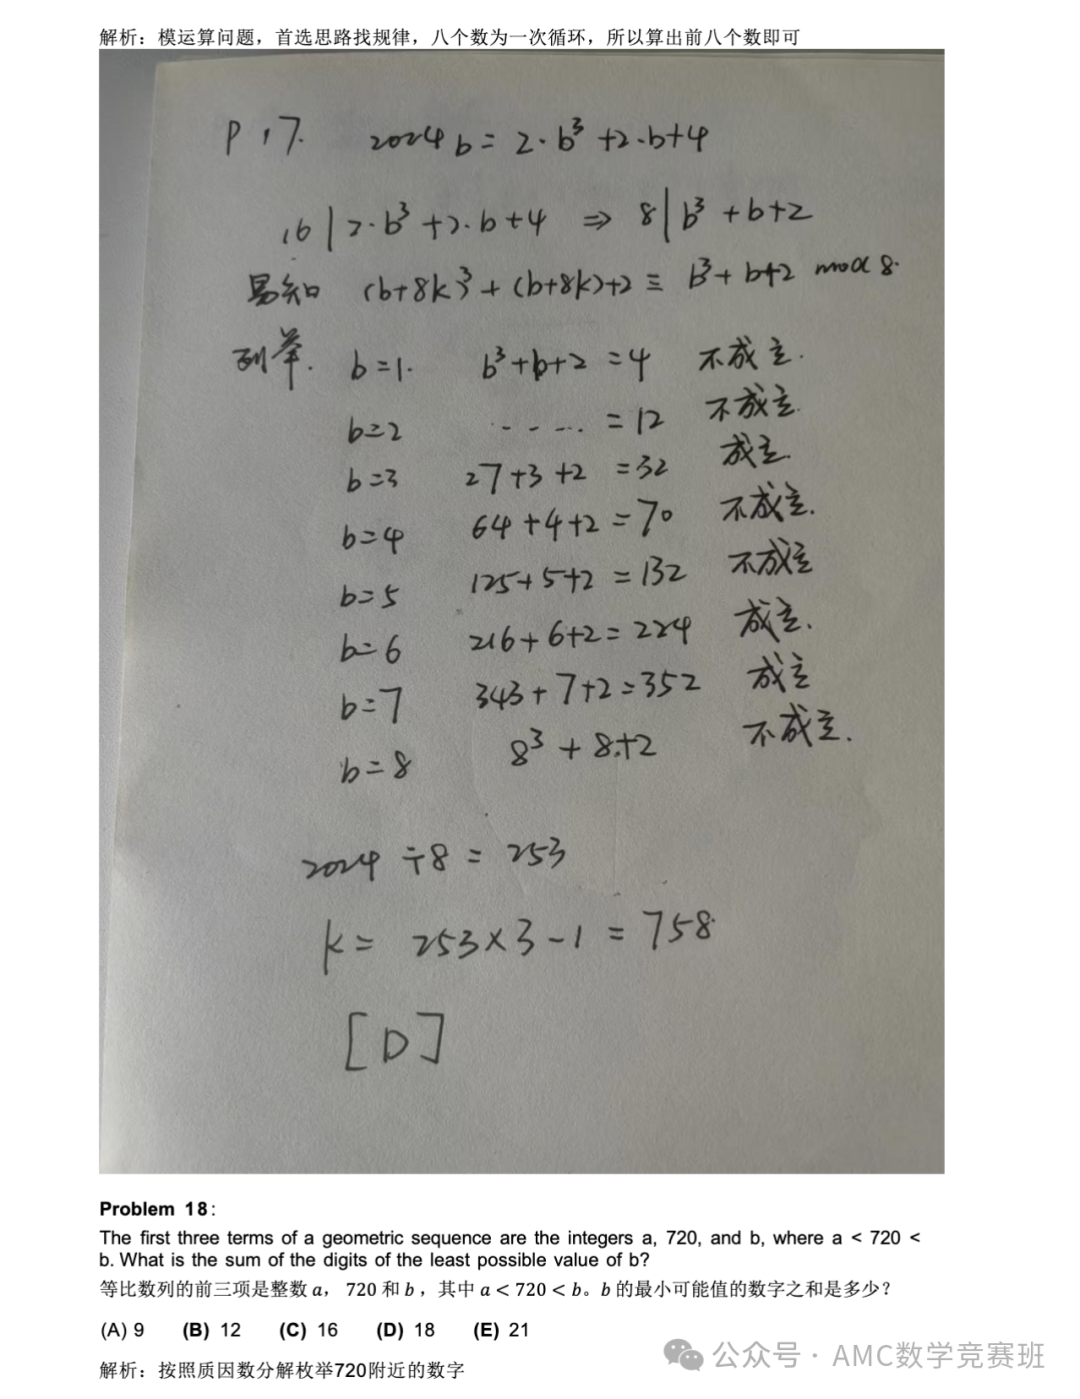 解析：模运算问题，首选思路找规律，八个数为一次循环，所以算出前八个数即可
P 17. 2024b = 2·b³ +2·b+4
16 | 2·b³ +2·b+4 ⇒ 8 | b³ +b+2
易知 (b+8k)³ + (b+8k)+2 ≡ b³ + b+2 mod 8.
列举. b=1. b³+b+2 =4 不成立.
b=2 ..... = 12 不成立.
b=3 27+3+2 =32 成立.
b=4 64+4+2=70 不成立.
b=5 125+5+2 =132 不成立
b=6 216+6+2=224 成立.
b=7 343+7+2=352 成立
b=8 8³ +8+2 不成立.
2024 ÷8 = 253
k= 253×3-1 = 758
[D]
Problem 18:
The first three terms of a geometric sequence are the integers a, 720, and b, where a < 720 <
b. What is the sum of the digits of the least possible value of b?
等比数列的前三项是整数 a， 720 和 b ，其中 a < 720 < b。b 的最小可能值的数字之和是多少？
(A) 9 (B) 12 (C) 16 (D) 18 (E) 21
解析：按照质因数分解枚举720附近的数字
公众号 · AMC数学竞赛班